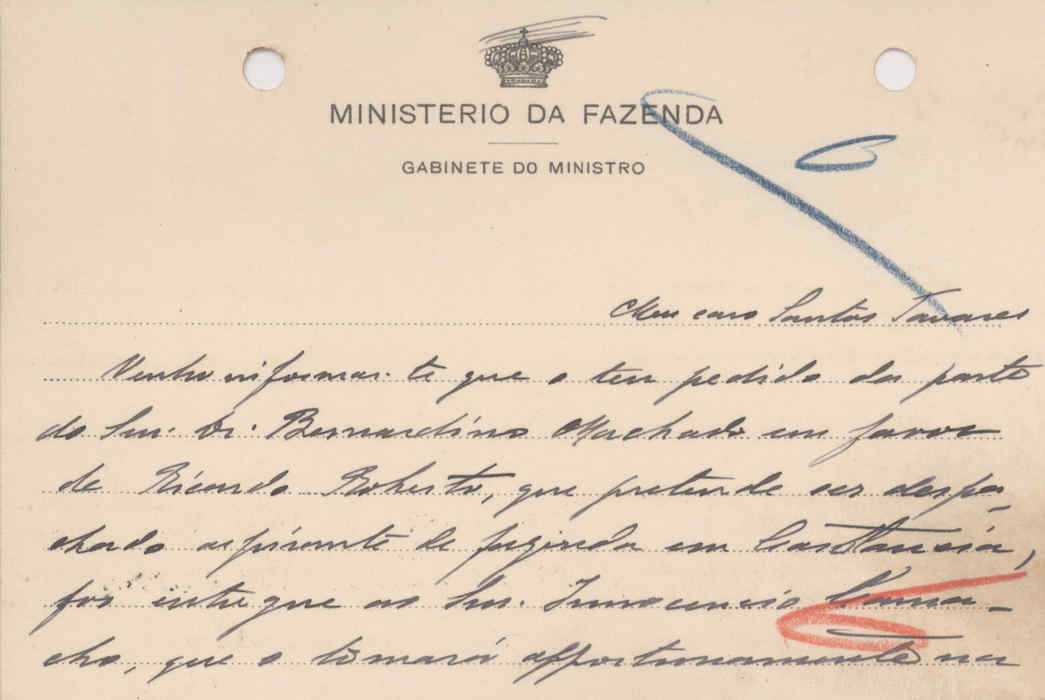 MINISTERIO DA FAZENDA
GABINETE DO MINISTRO
Meu caro Santos Tavares
Venho informar-te que o teu pedido da parte
do Snr. Dr. Bernardino Machado em favor
de Ricardo Roberto, que pretende ser despa-
chado aspirante de fazenda em
foi entregue ao Snr. Innocencio Cama-
cho, que o tomará opportunamente na